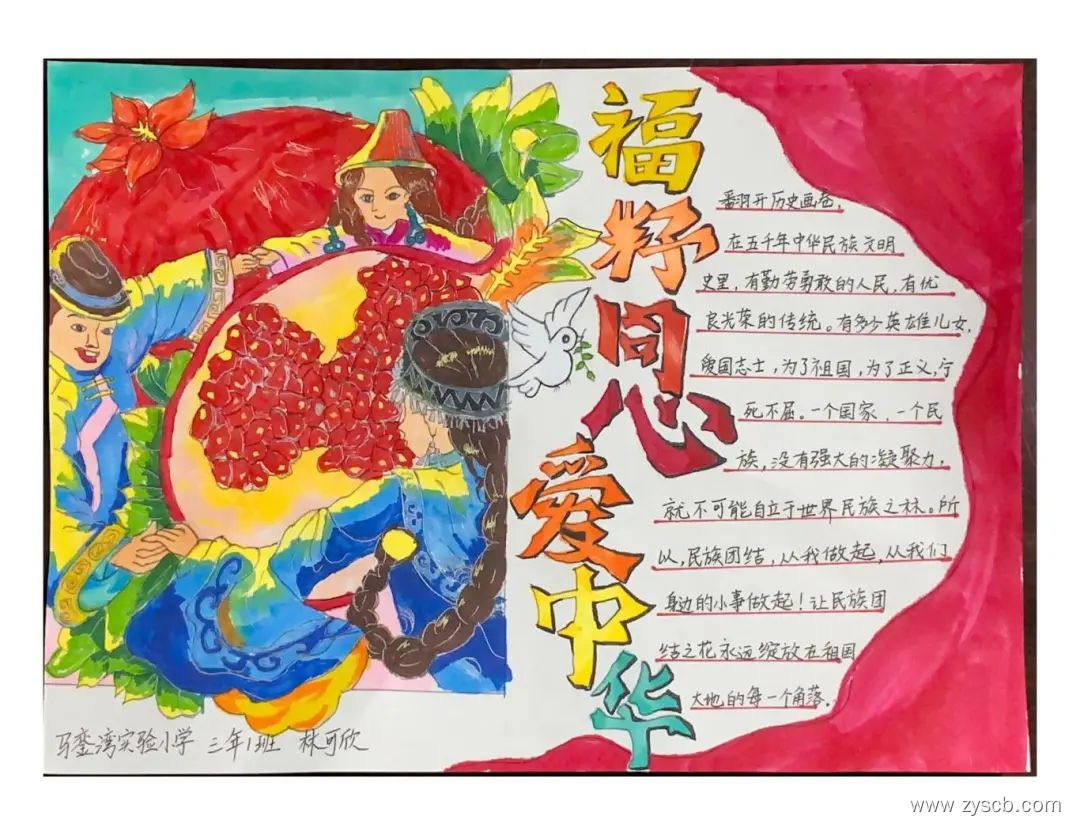 福籽同心爱中华
翻开历史画卷，
在五千年中华民族文明
史里，有勤劳勇敢的人民，有优
良光荣的传统。有多少英雄儿女，
爱国志士，为了祖国，为了正义，宁
死不屈。一个国家，一个民
族，没有强大的凝聚力，
就不可能自立于世界民族之林。所
以，民族团结，从我做起，从我们
身边的小事做起！让民族团
结之花永远绽放在祖国
大地的每一个角落。
马銮湾实验小学 三年1班 林可欣
www.zyscb.com